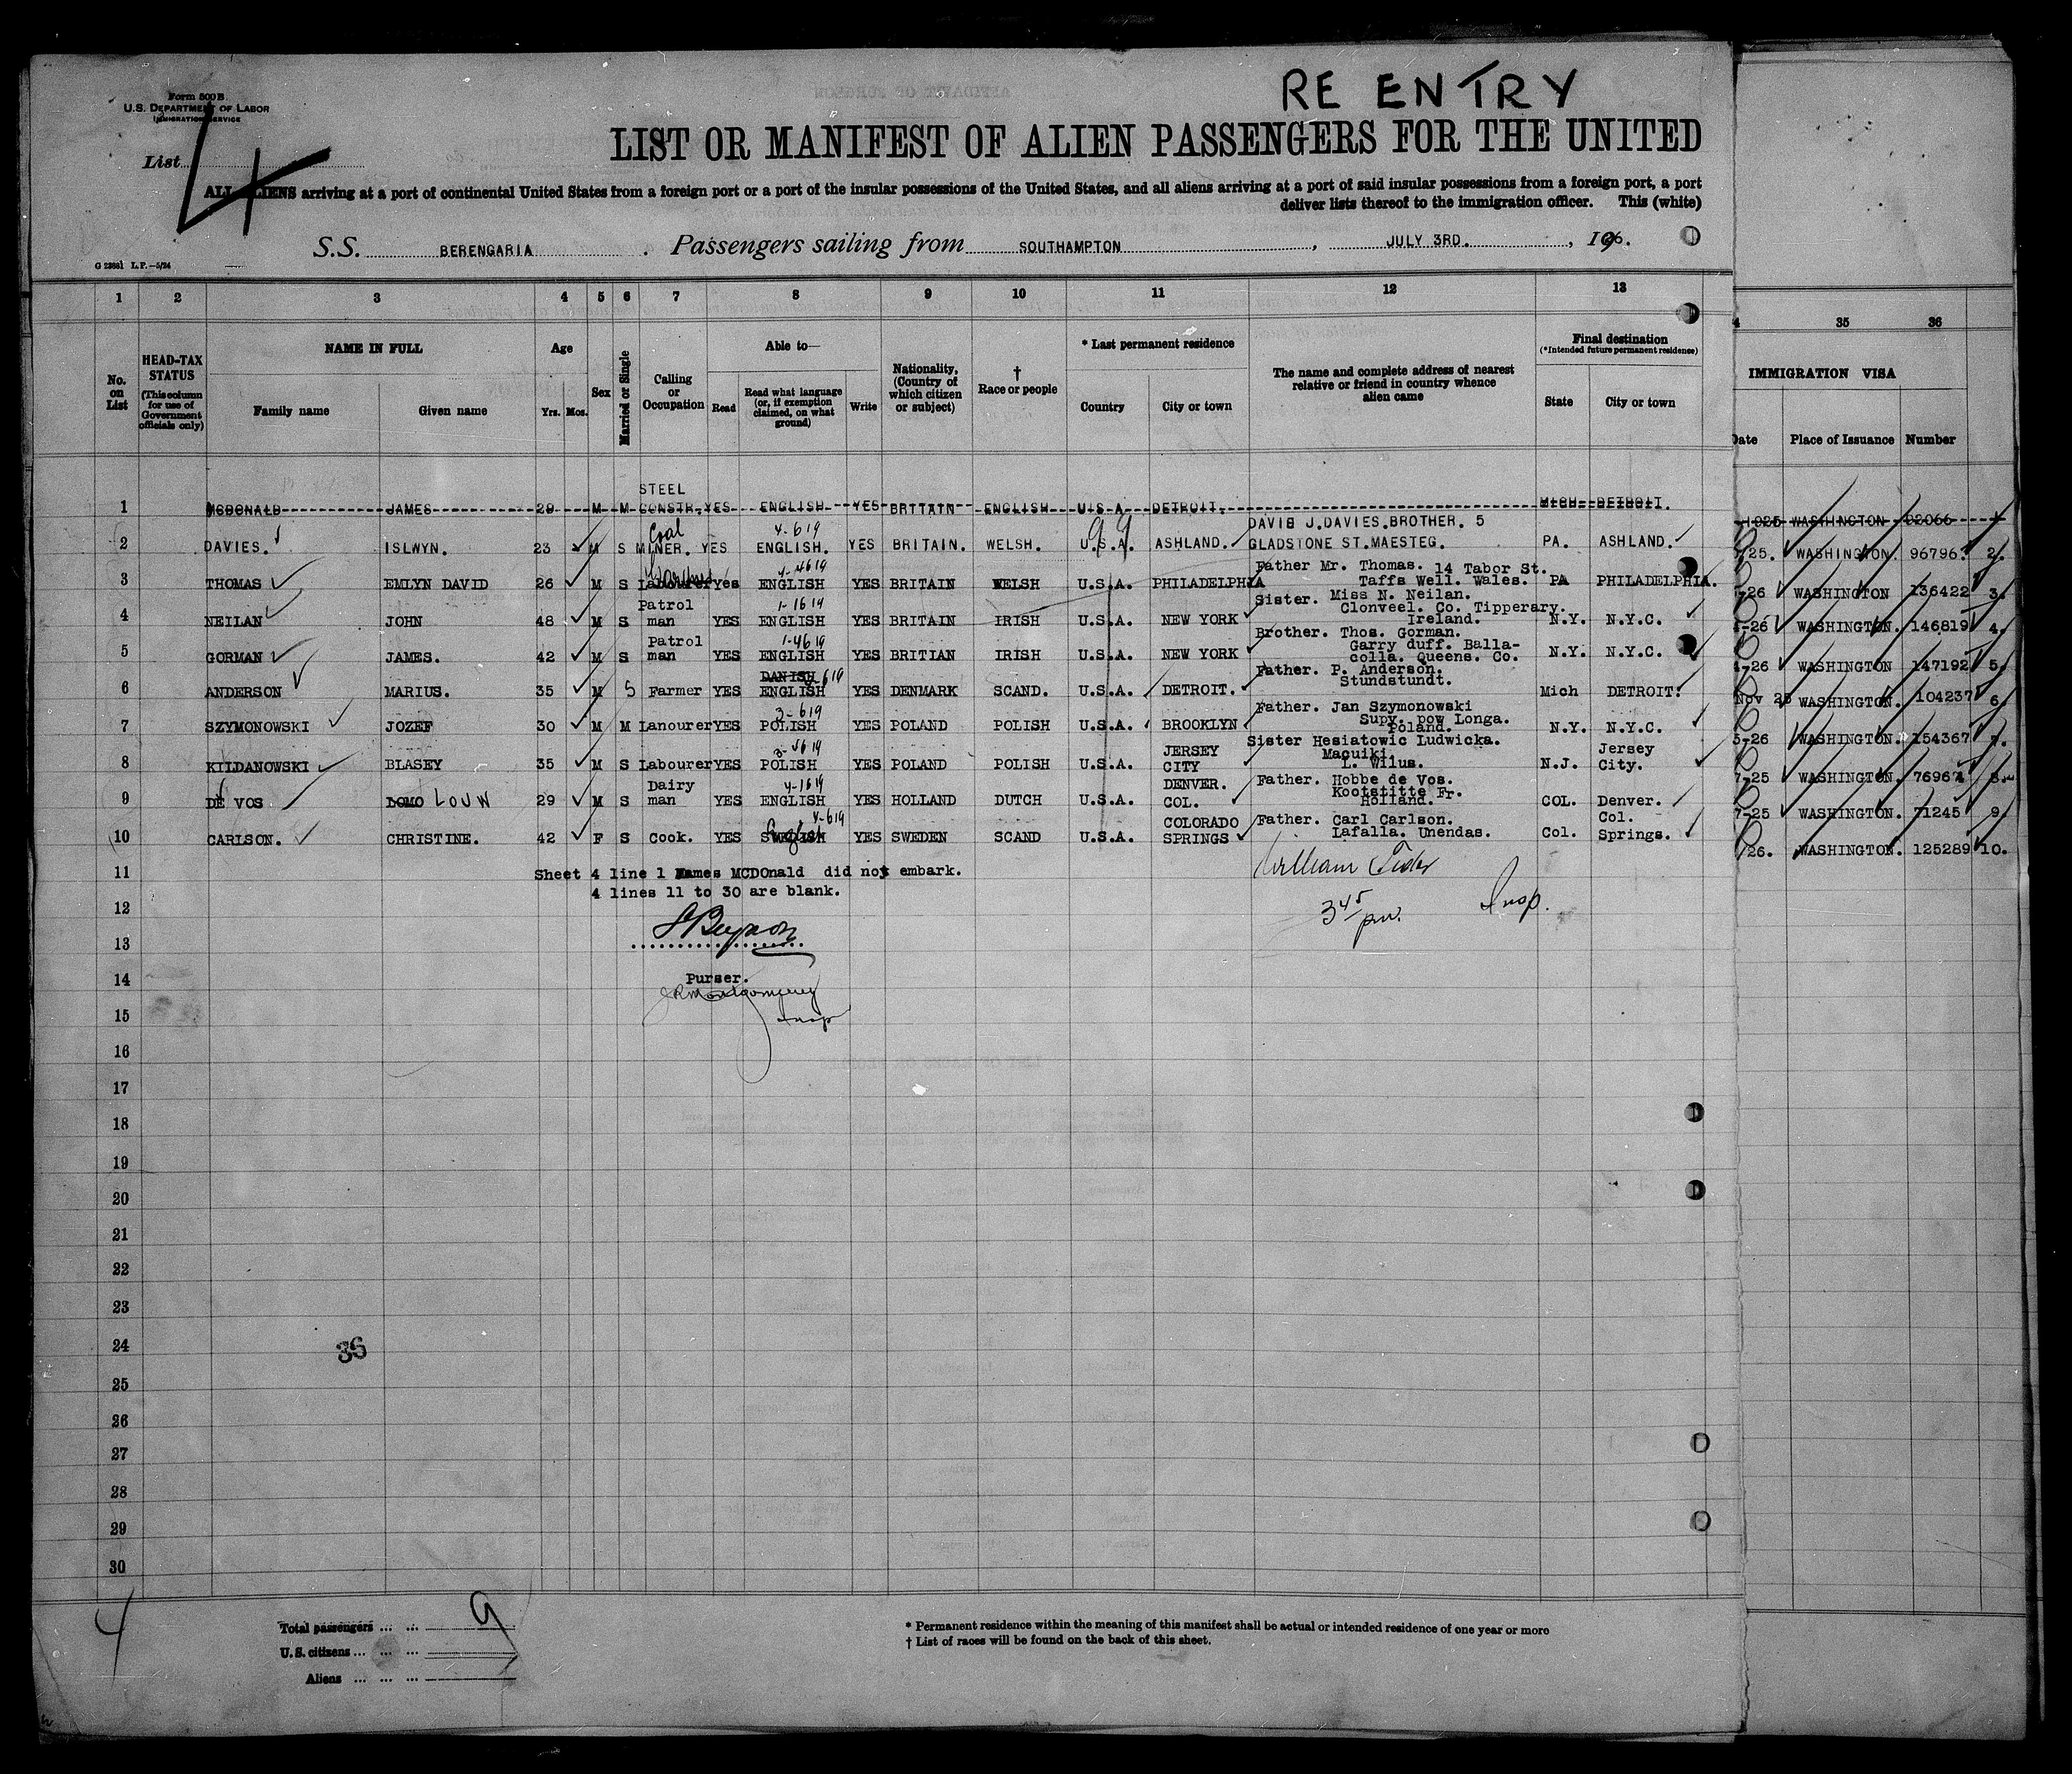 RE ENTRY
Form 500 B
U.S. DEPARTMENT OF LABOR
IMMIGRATION SERVICE
List 4
LIST OR MANIFEST OF ALIEN PASSENGERS FOR THE UNITED
ALL ALIENS arriving at a port of continental United States from a foreign port or a port of the insular possessions of the United States, and all aliens arriving at a port of said insular possessions from a foreign port, a port
deliver lists thereof to the immigration officer. This (white)
S.S. BERENGARIA. Passengers sailing from SOUTHAMPTON, JULY 3RD., 1926.
1 2 3 4 5 6 7 8 9 10 11 12 13
35 36
No. on List
HEAD-TAX STATUS (This column for use of Government officials only)
NAME IN FULL
Family name Given name
Age Yrs. Mos.
Sex
Married or Single
Calling or Occupation
Able to—
Read Read what language (or, if exemption claimed, on what ground) Write
Nationality. (Country of which citizen or subject)
† Race or people
* Last permanent residence
Country City or town
The name and complete address of nearest relative or friend in country whence alien came
Final destination (*Intended future permanent residence)
State City or town
IMMIGRATION VISA
Date Place of Issuance Number
1 MCDONALD JAMES 29 M M STEEL CONSTR. YES ENGLISH YES BRITAIN ENGLISH U.S.A. DETROIT. MICH DETROIT. 1925 WASHINGTON 92066
2 DAVIES. ISLWYN. 23 M S Coal MINER. YES 4-619 ENGLISH. YES BRITAIN. WELSH. U.S.A. ASHLAND. DAVID J.DAVIES.BROTHER. 5 GLADSTONE ST.MAESTEG. PA. ASHLAND. /25. WASHINGTON. 96796. 2.
3 THOMAS EMLYN DAVID 26 M S Labourer Yes 4-4619 ENGLISH YES BRITAIN WELSH U.S.A. PHILADELPHIA Father Mr. Thomas. 14 Tabor St. Taffs Well. Wales. PA PHILADELPHIA. -26 WASHINGTON 136422 3.
4 NEILAN JOHN 48 M S Patrol man YES 1-1619 ENGLISH YES BRITAIN IRISH U.S.A. NEW YORK Sister. Miss N. Neilan. Clonveel. Co. Tipperary. Ireland. N.Y. N.Y.C. -26 WASHINGTON. 146819 4.
5 GORMAN JAMES. 42 M S Patrol man YES 1-4619 ENGLISH YES BRITIAN IRISH U.S.A. NEW YORK Brother. Thos. Gorman. Garry duff. Balla- colla. Queens. Co. N.Y. N.Y.C. -26 WASHINGTON 147192 5.
6 ANDERSON MARIUS. 35 M S Farmer YES DANISH 619 ENGLISH YES DENMARK SCAND. U.S.A. DETROIT. Father. P. Anderson. Stundstundt. Mich DETROIT. Nov 25 WASHINGTON 104237 6.
7 SZYMONOWSKI JOZEF 30 M M Lanourer YES 3-619 POLISH YES POLAND POLISH U.S.A. BROOKLYN Father. Jan Szymonowski Supy. pow Longa. Poland. N.Y. N.Y.C. 5-26 WASHINGTON. 154367 7.
8 KILDANOWSKI BLASEY 35 M S Labourer YES POLISH YES POLAND POLISH U.S.A. JERSEY CITY Sister Hesiatowic Ludwicka. Macuiki. L. Wilus. N.J. Jersey City. 7-25 WASHINGTON. 76967 8.
9 DE VOS LOMO LOUW 29 M S Dairy man YES 4-1619 ENGLISH YES HOLLAND DUTCH U.S.A. DENVER. COL. Father. Hobbe de Vos. Kootstitte Fr. Holland. COL. Denver. 7-25 WASHINGTON. 71245 9.
10 CARLSON. CHRISTINE. 42 F S Cook. YES 4-619 English SWEDISH YES SWEDEN SCAND U.S.A. COLORADO SPRINGS Father. Carl Carlson. Lafalla. Unendas. Col. Col. Springs. /26. WASHINGTON. 125289 10.
11 Sheet 4 line 1 James MCDOnald did not embark.
4 lines 11 to 30 are blank.
12
3 45 pm. Insp.
13
14 Purser.
JRMontgomery
15 Insp
16
17
18
19
20
21
22
23
24 36
25
26
27
28
29
30
4
Total passengers ... ... 9
U.S. citizens ... ... ...
Aliens ... ... ...
* Permanent residence within the meaning of this manifest shall be actual or intended residence of one year or more
† List of races will be found on the back of this sheet.